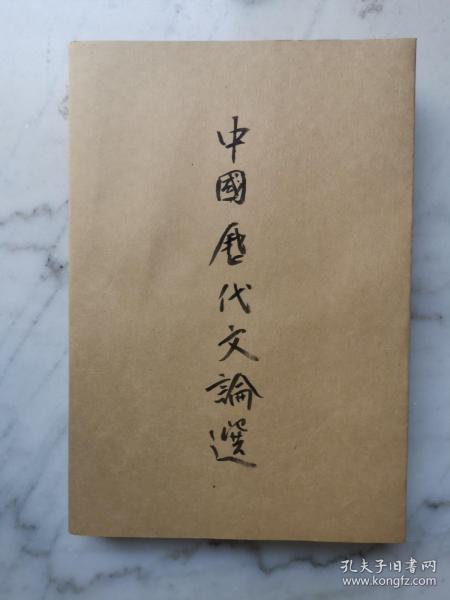 中國歷代文論選
孔夫子旧书网
www.kongfz.com